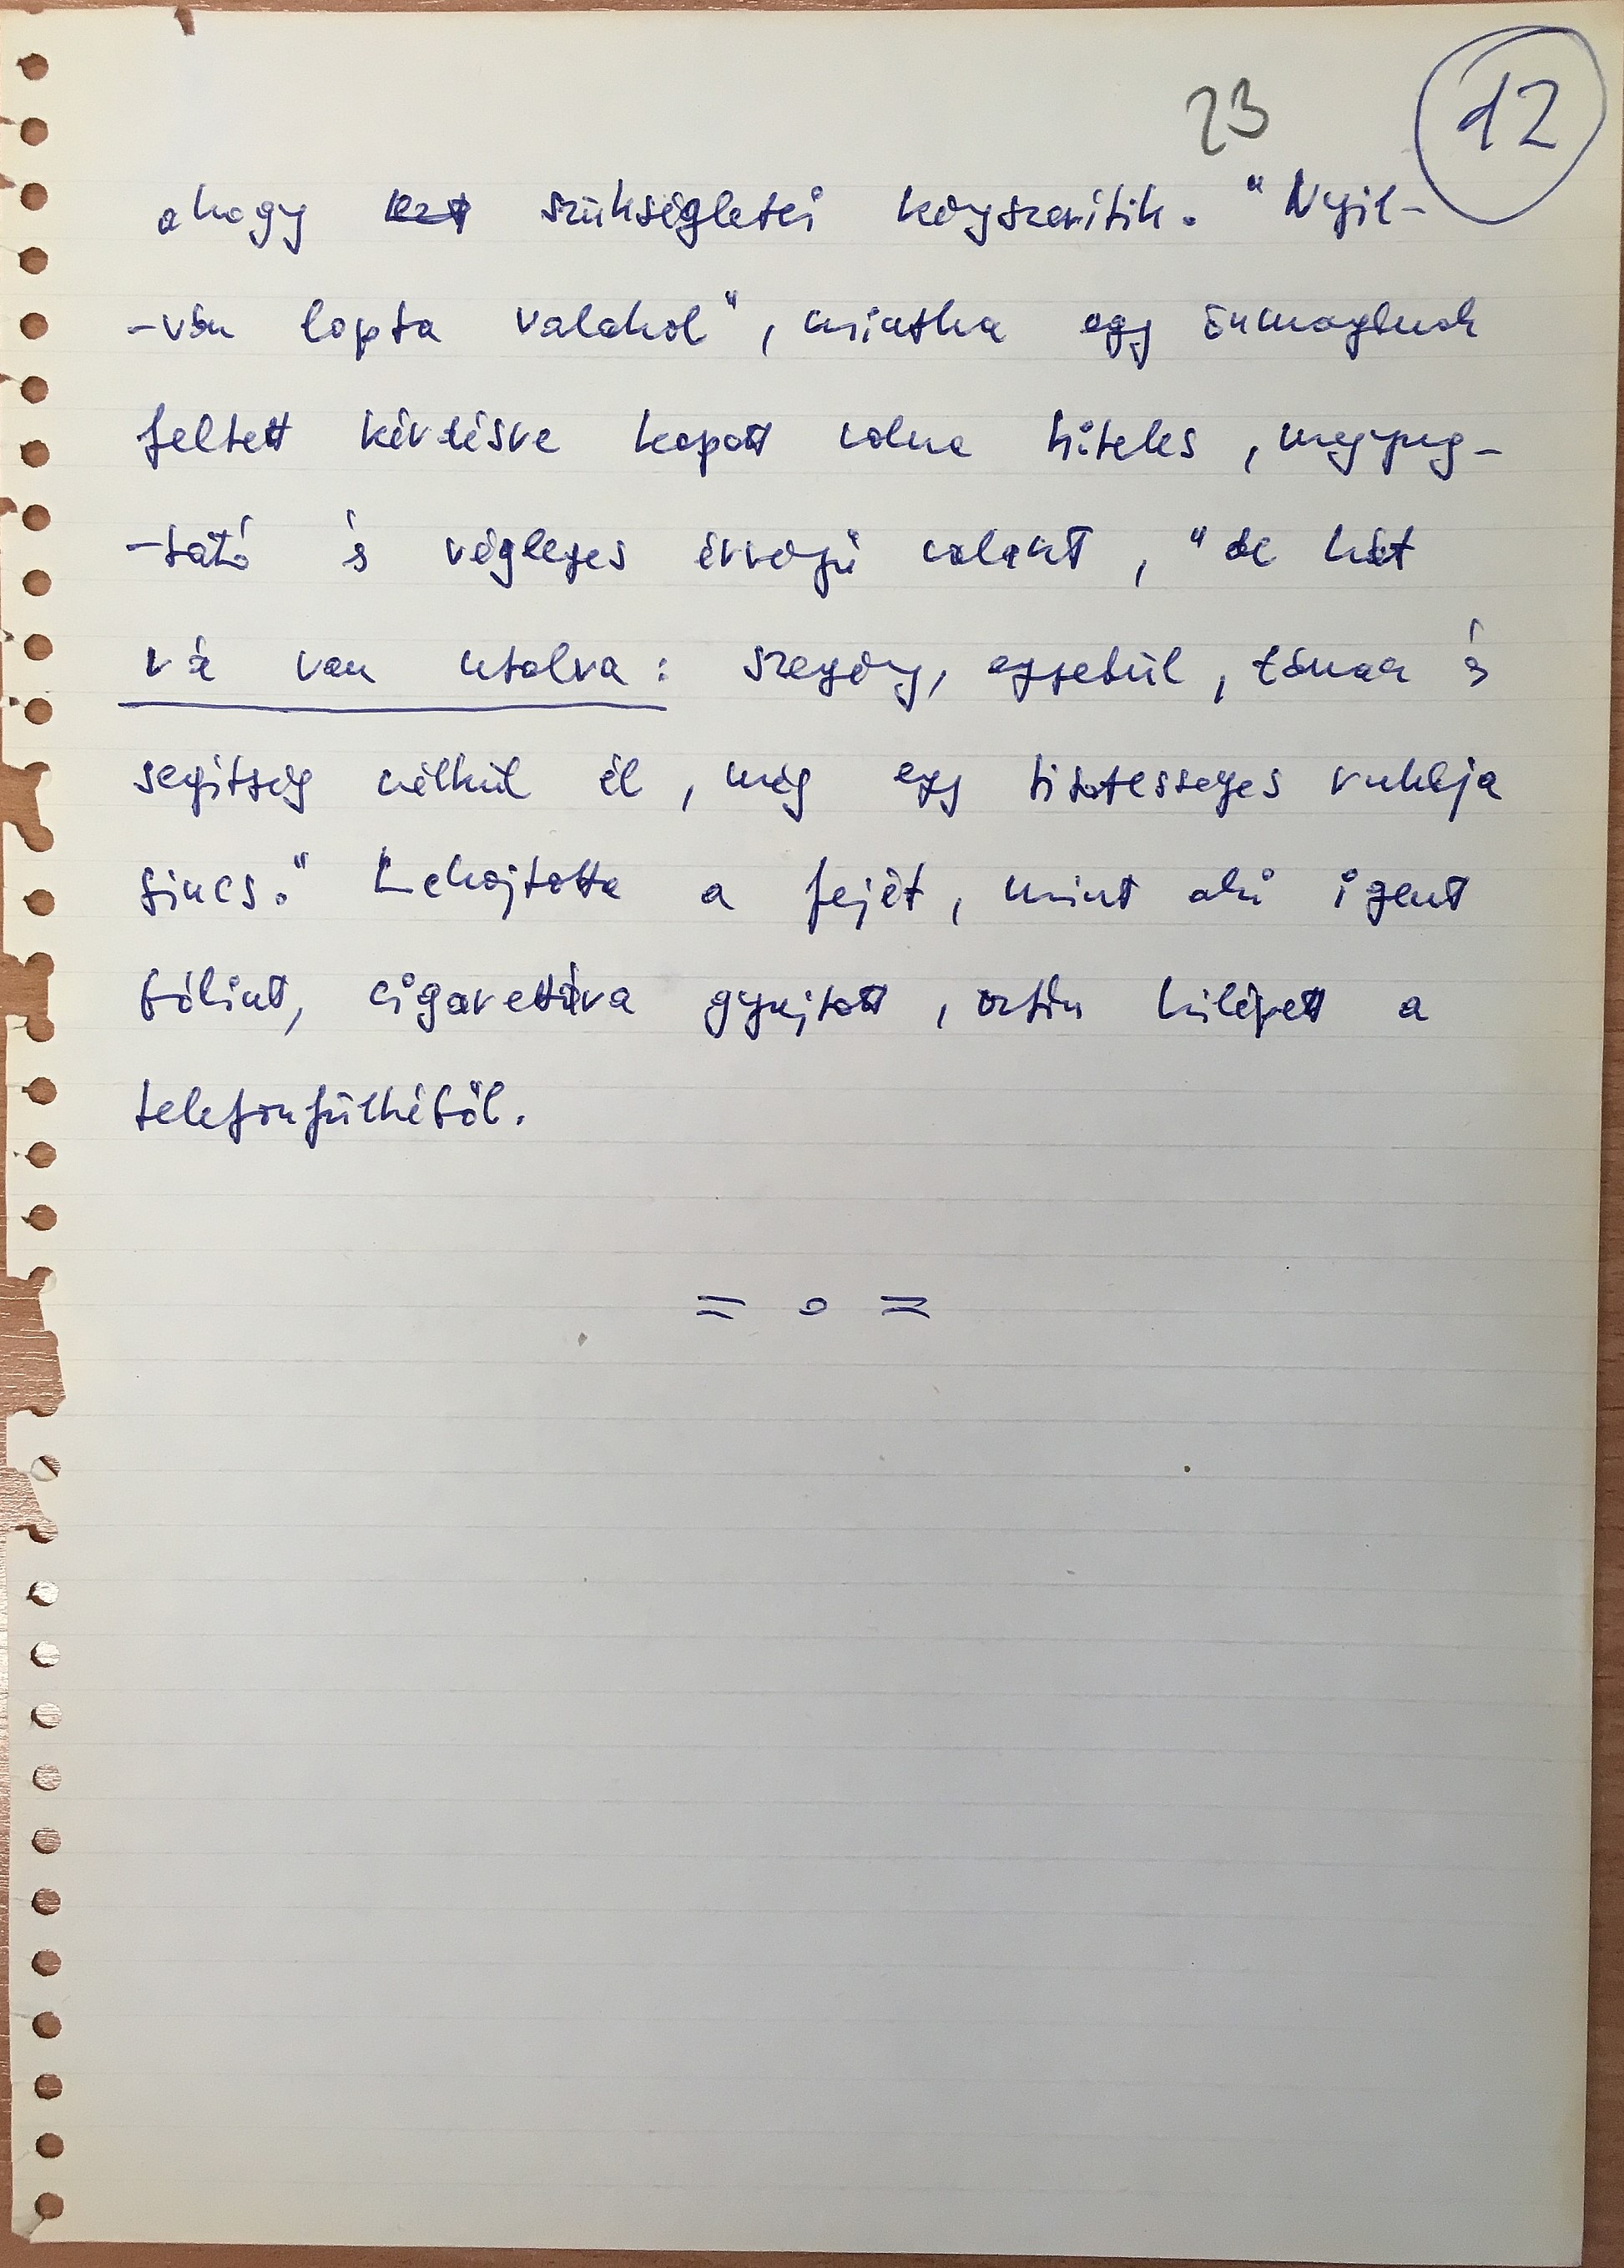 23
12
ahogy ezt szükségletei kényszerítik. "Nyil-
-ván lopta valahol", mintha egy önmagának
feltett kérdésre kapott volna hiteles, megnyug-
-tató és végleges érvényű választ, "de hát
rá van utalva: szegény, egyedül, támasz és
segítség nélkül él, még egy tisztességes ruhája
sincs." Lehajtotta a fejét, mint aki igent
bólint, cigarettára gyujtott, aztán kilépett a
telefonfülkéből.
= o =